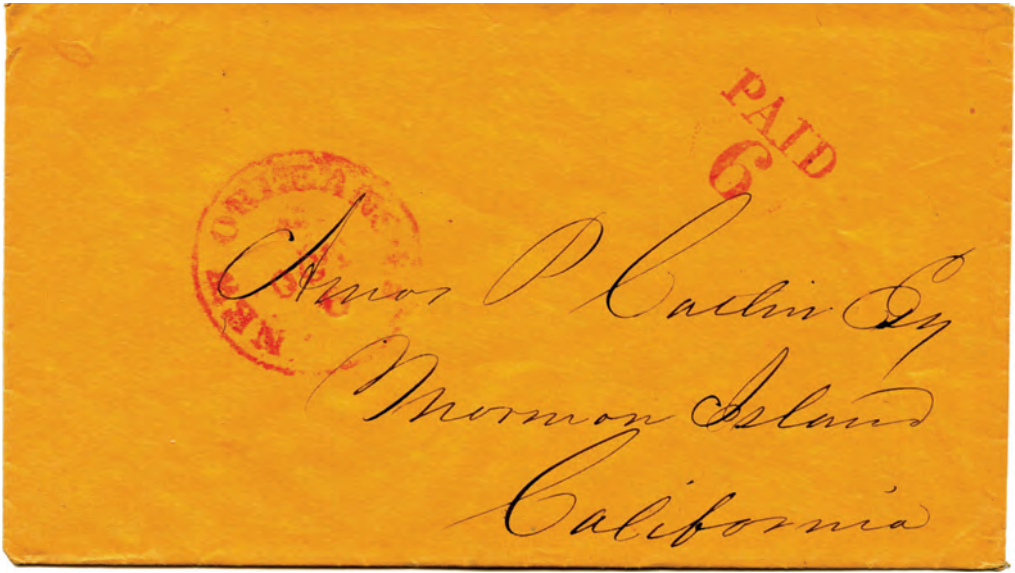 PAID
6
NEW ORLEANS
Amos P Catlin Esq
Mormon Island
California